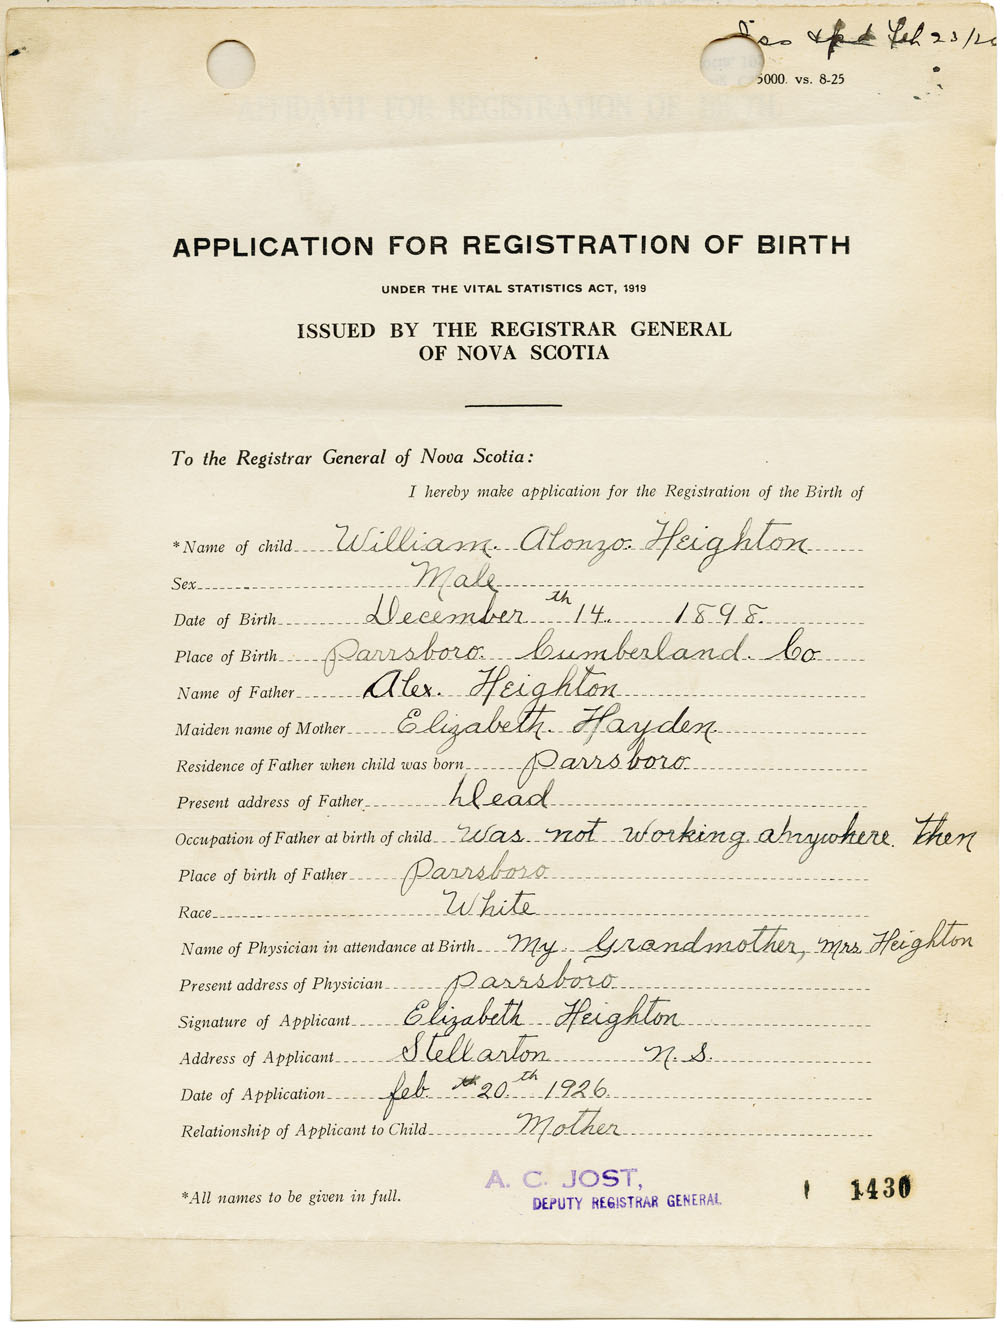 Feb 23/26
5000. vs. 8-25
AFFIDAVIT FOR REGISTRATION OF BIRTH
APPLICATION FOR REGISTRATION OF BIRTH
UNDER THE VITAL STATISTICS ACT, 1919
ISSUED BY THE REGISTRAR GENERAL
OF NOVA SCOTIA
To the Registrar General of Nova Scotia:
I hereby make application for the Registration of the Birth of
*Name of child William. Alonzo. Heighton
Sex Male
Date of Birth December 14th. 1898.
Place of Birth Parrsboro. Cumberland. Co
Name of Father Alex. Heighton
Maiden name of Mother Elizabeth. Hayden
Residence of Father when child was born Parrsboro
Present address of Father Dead
Occupation of Father at birth of child Was not working anywhere. then
Place of birth of Father Parrsboro
Race White
Name of Physician in attendance at Birth My Grandmother, Mrs Heighton
Present address of Physician Parrsboro
Signature of Applicant Elizabeth Heighton
Address of Applicant Stellarton N. S.
Date of Application feb. 20th 1926
Relationship of Applicant to Child Mother
*All names to be given in full.
A. C. JOST,
DEPUTY REGISTRAR GENERAL
1430